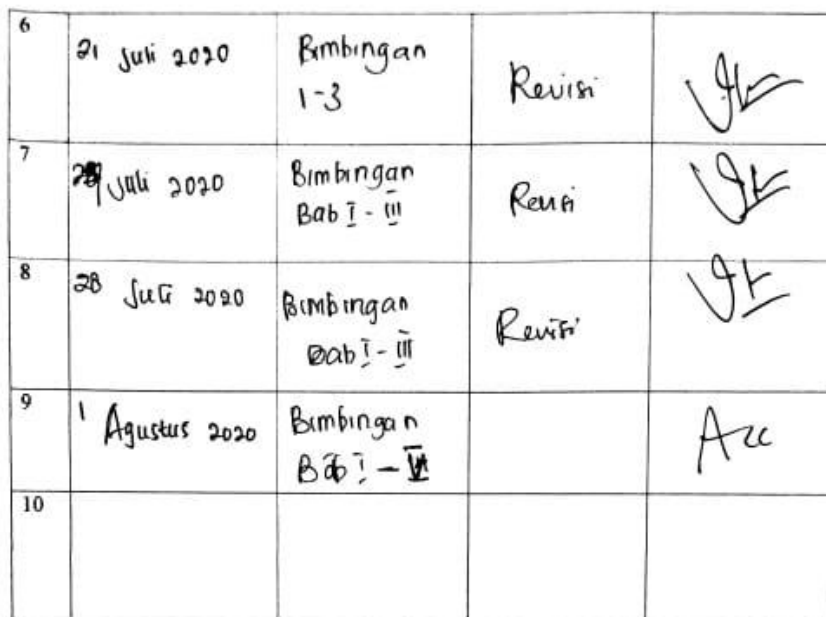 6
21 Juli 2020
Bimbingan
1-3
Revisi
7
Juli 2020
Bimbingan
Bab I - III
Revisi
8
28 Juli 2020
Bimbingan
Bab I - III
Revisi
9
1 Agustus 2020
Bimbingan
Bab I -
Acc
10